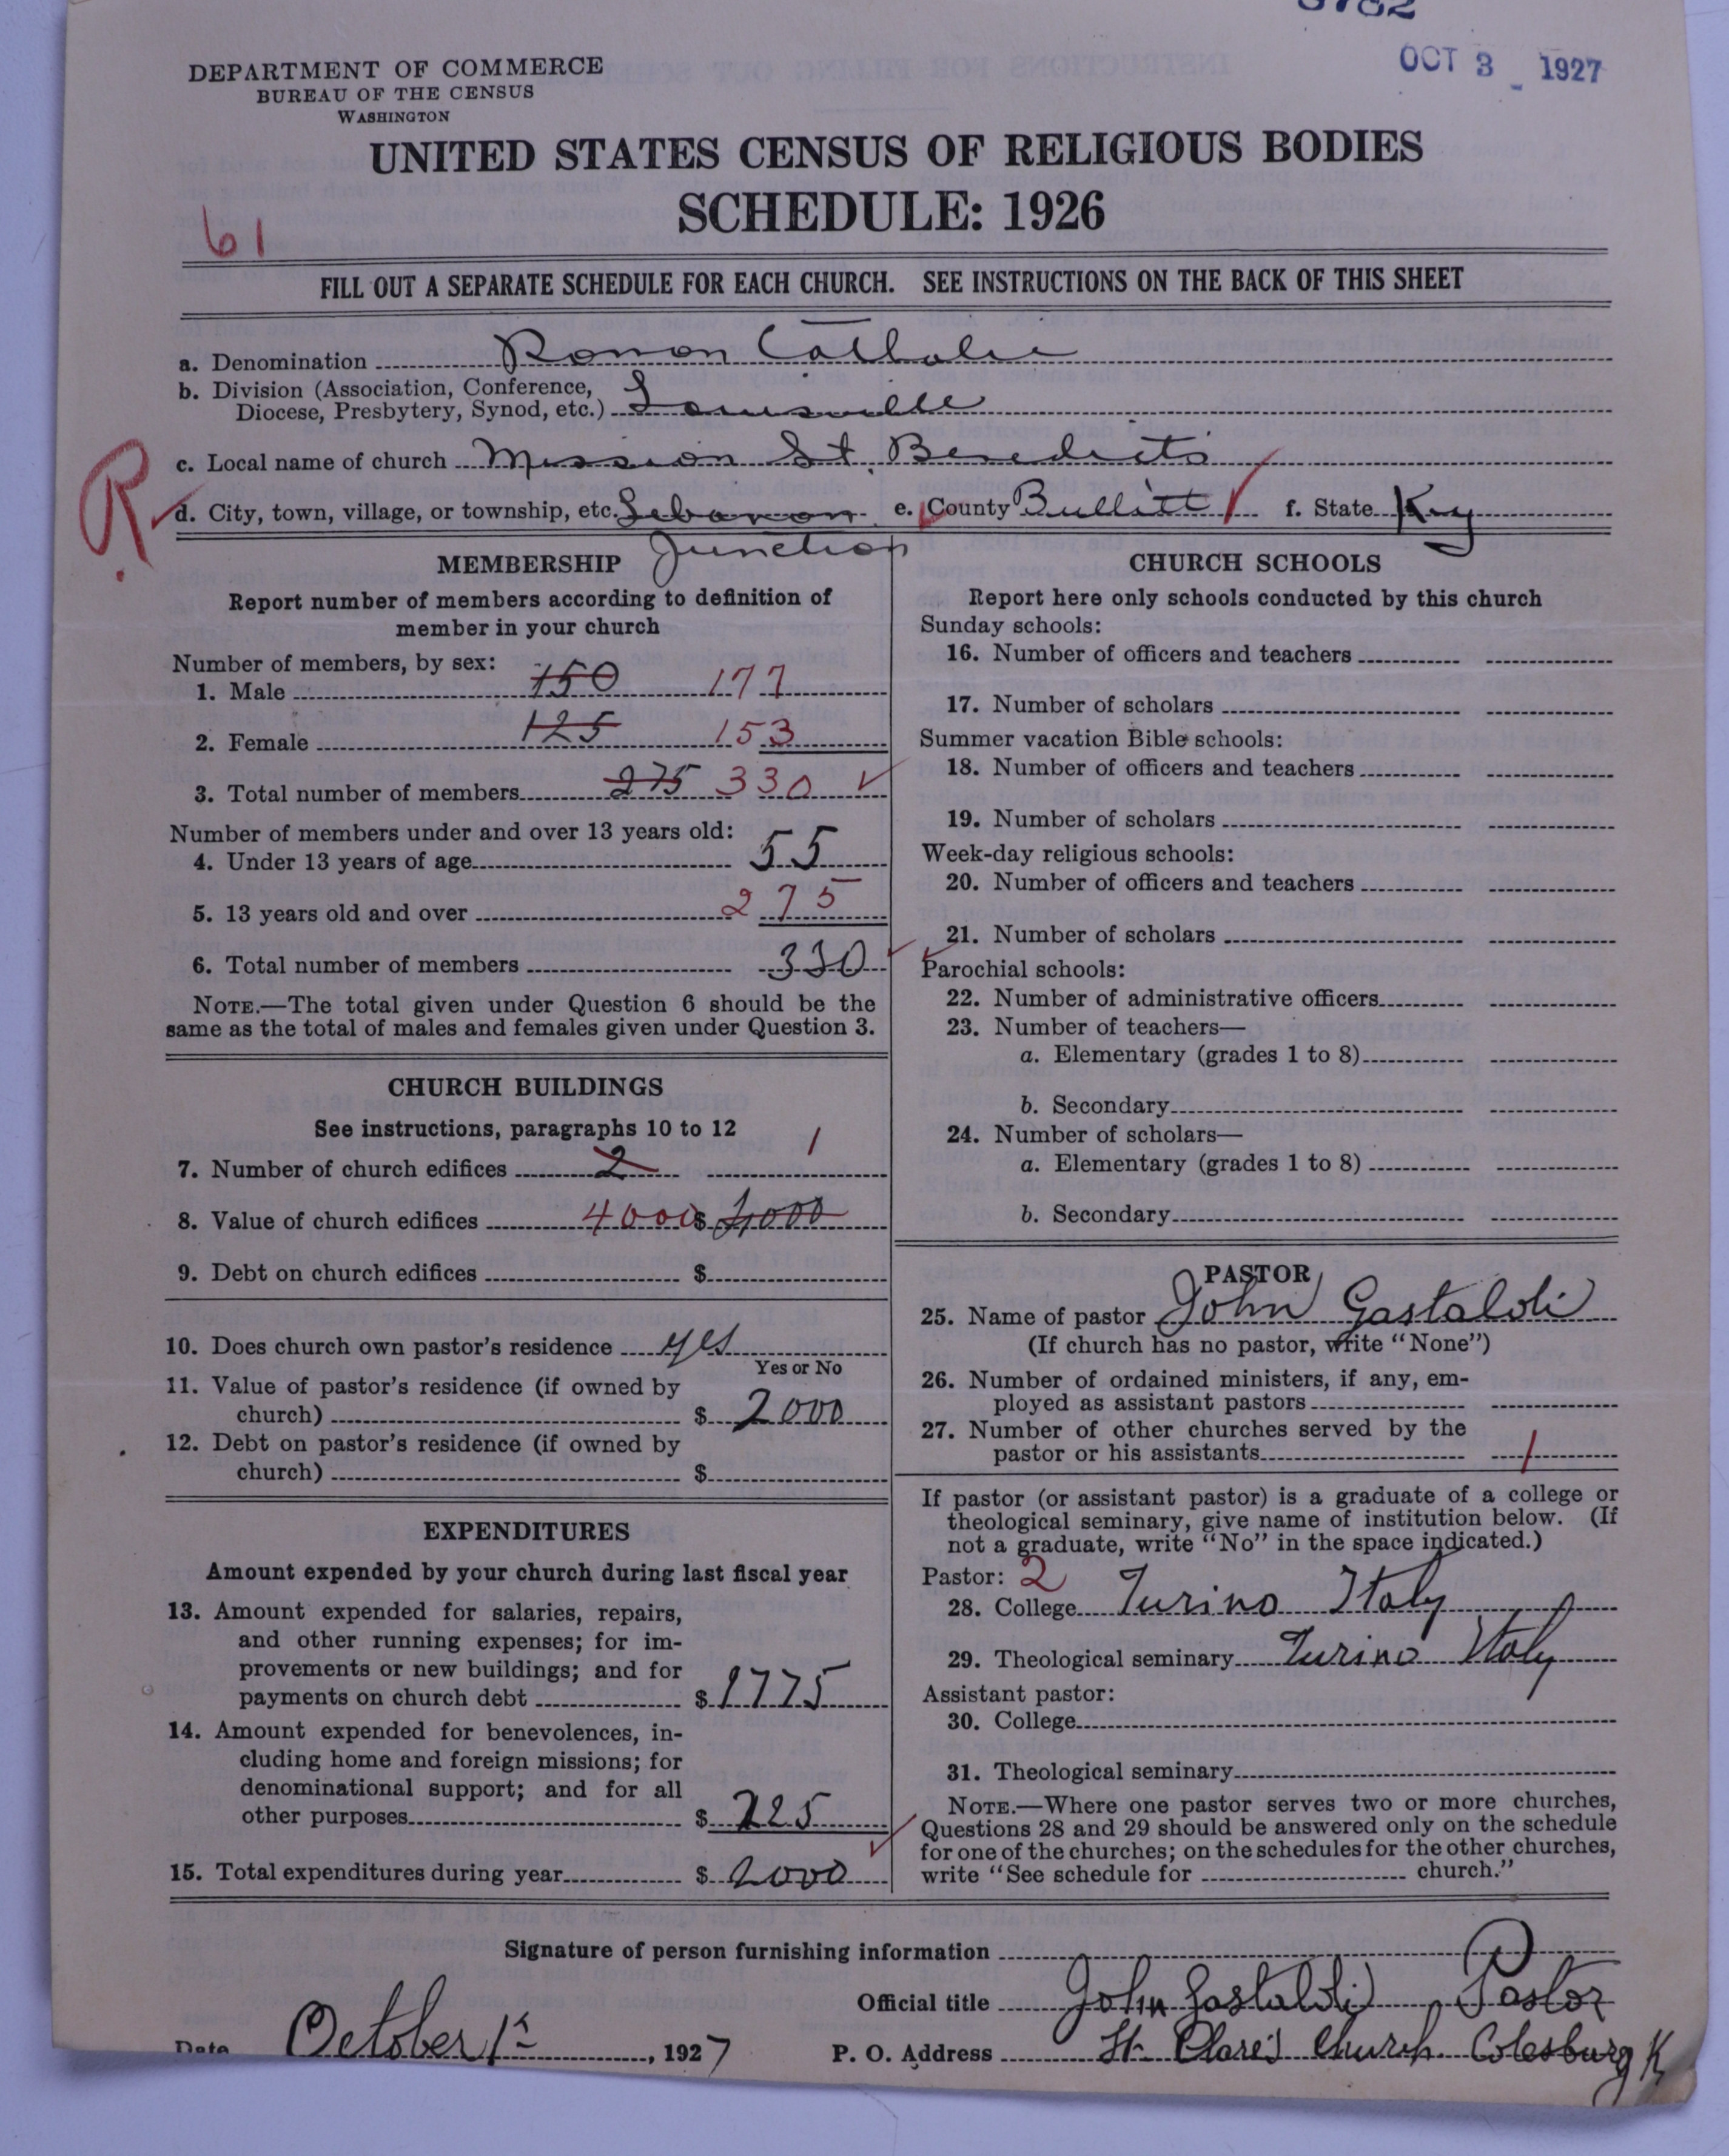 OCT 3 1927
DEPARTMENT OF COMMERCE
BUREAU OF THE CENSUS
WASHINGTON
UNITED STATES CENSUS OF RELIGIOUS BODIES
SCHEDULE: 1926
61
FILL OUT A SEPARATE SCHEDULE FOR EACH CHURCH. SEE INSTRUCTIONS ON THE BACK OF THIS SHEET
a. Denomination Roman Catholic
b. Division (Association, Conference,
Diocese, Presbytery, Synod, etc.) Louisville
c. Local name of church Mission St. Benedicts
R.
d. City, town, village, or township, etc. Lebanon e. County Bullitt f. State Ky
Junction
MEMBERSHIP
Report number of members according to definition of
member in your church
Number of members, by sex:
1. Male 150 177
2. Female 125 153
3. Total number of members 275 330
Number of members under and over 13 years old:
4. Under 13 years of age 55
5. 13 years old and over 275
6. Total number of members 330
NOTE.—The total given under Question 6 should be the
same as the total of males and females given under Question 3.
CHURCH BUILDINGS
See instructions, paragraphs 10 to 12
7. Number of church edifices 2 1
8. Value of church edifices 4000 $ 4000
9. Debt on church edifices $
10. Does church own pastor's residence yes
Yes or No
11. Value of pastor's residence (if owned by
church) $ 2000
12. Debt on pastor's residence (if owned by
church) $
EXPENDITURES
Amount expended by your church during last fiscal year
13. Amount expended for salaries, repairs,
and other running expenses; for im-
provements or new buildings; and for
payments on church debt $ 1775
14. Amount expended for benevolences, in-
cluding home and foreign missions; for
denominational support; and for all
other purposes $ 225
15. Total expenditures during year $ 2000
CHURCH SCHOOLS
Report here only schools conducted by this church
Sunday schools:
16. Number of officers and teachers
17. Number of scholars
Summer vacation Bible schools:
18. Number of officers and teachers
19. Number of scholars
Week-day religious schools:
20. Number of officers and teachers
21. Number of scholars
Parochial schools:
22. Number of administrative officers
23. Number of teachers—
a. Elementary (grades 1 to 8)
b. Secondary
24. Number of scholars—
a. Elementary (grades 1 to 8)
b. Secondary
PASTOR
25. Name of pastor John Gastaldi
(If church has no pastor, write "None")
26. Number of ordained ministers, if any, em-
ployed as assistant pastors
27. Number of other churches served by the
pastor or his assistants 1
If pastor (or assistant pastor) is a graduate of a college or
theological seminary, give name of institution below. (If
not a graduate, write "No" in the space indicated.)
Pastor: 2
28. College Turino Italy
29. Theological seminary Turino Italy
Assistant pastor:
30. College
31. Theological seminary
NOTE.—Where one pastor serves two or more churches,
Questions 28 and 29 should be answered only on the schedule
for one of the churches; on the schedules for the other churches,
write "See schedule for church."
Signature of person furnishing information
Official title John Gastaldi, Pastor
Date October 1st, 1927 P. O. Address St. Clare's Church Colesburg K